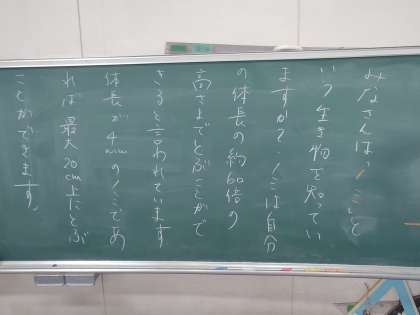 みなさんは、ノミと
いう生き物を知ってい
ますか？ノミは自分
の体長の約60倍の
高さまでとぶことがで
きると言われています
体長が4mmのノミであ
れば最大20cm上にとぶ
ことができます。